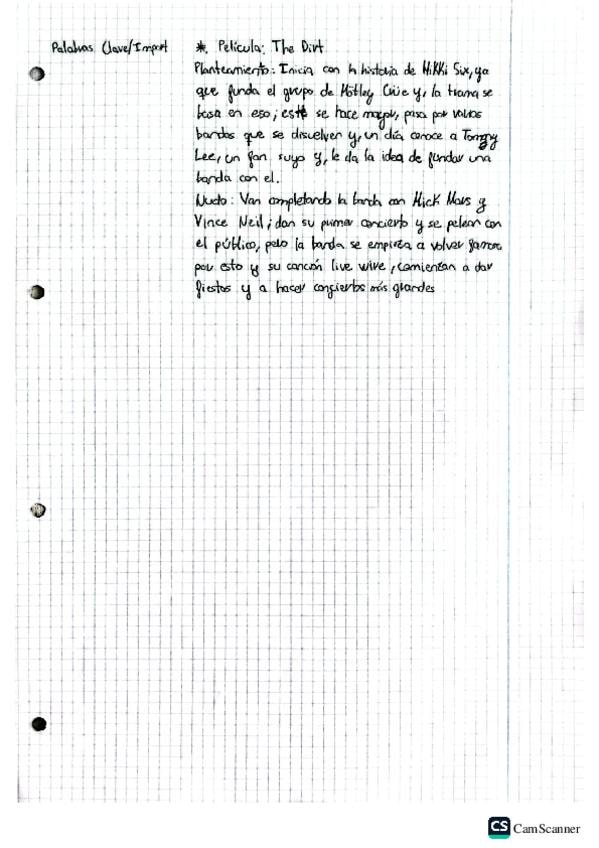 Palabras Clave/Import
*. Película: The Dirt
Planteamiento: Inicia con la historia de Nikki Six, ya
que funda el grupo de Mötley Crüe y, la trama se
basa en eso; este se hace mayor, pasa por varias
bandas que se disuelven y, un día conoce a Tommy
Lee, un fan suyo y, le da la idea de fundar una
banda con el.
Nudo: Van completando la banda con Mick Mars y
Vince Neil; dan su primer concierto y se pelean con
el público, pero la banda se empieza a volver famosa
por esto y su canción live wire, comienzan a dar
fiestas y a hacer conciertos más grandes
CS CamScanner